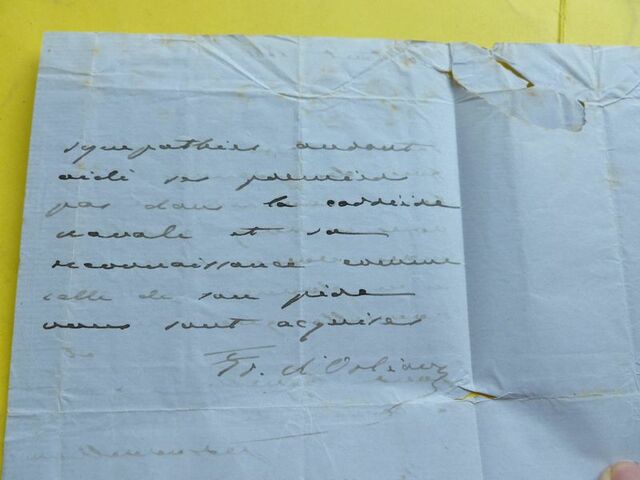 sympathies auront
aidé ses premiers
pas dans la carrière
navale et sa
reconnaissance comme
celle de son père
vous sont acquises
Fr. d'Orléans